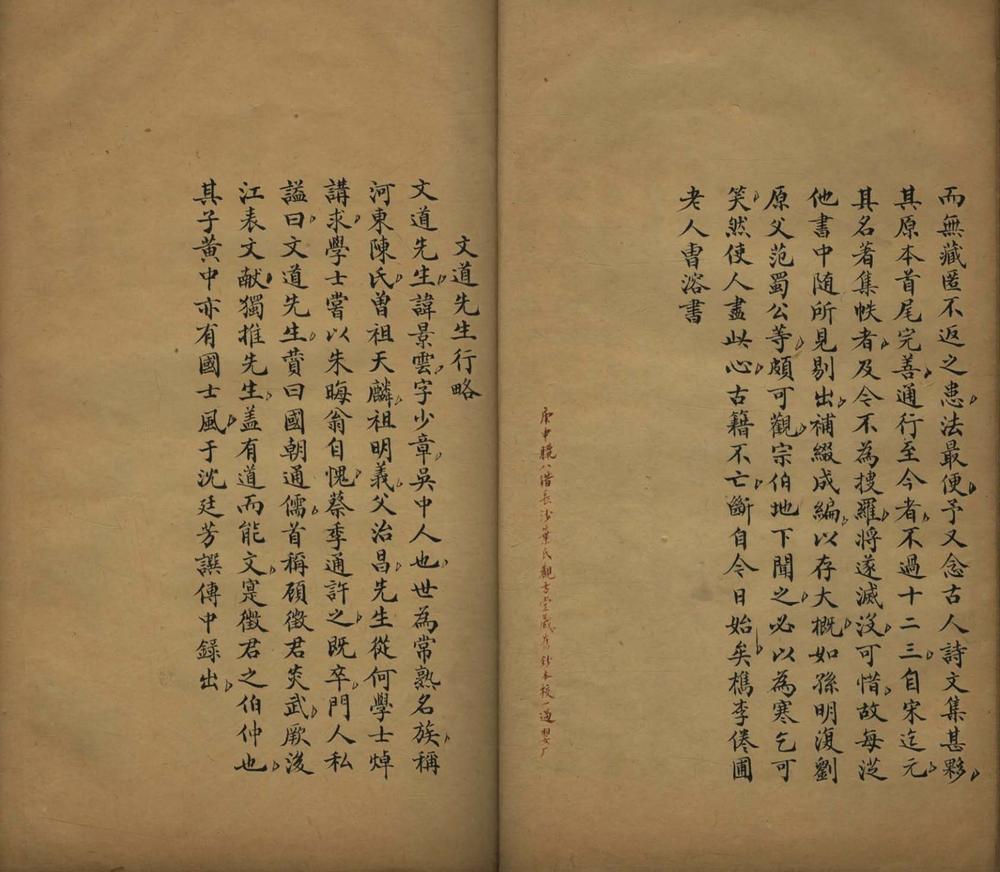 而無藏匿不返之患法最便予又念古人詩文集甚夥
其原本首尾完善通行至今者不過十二三自宋迄元
其名著集帙者及今不為搜羅將遂滅沒可惜故每從
他書中随所見剔出補綴成編以存大概如孫明復劉
原父范蜀公等頗可觀宗伯地下聞之必以為寒乞可
笑然使人盡此心古籍不亡斷自今日始矣檇李倦圃
老人曹溶書
庚申臘八借長沙葉氏觀古堂藏舊鈔本校一過
文道先生行略
文道先生諱景雲字少章吳中人也世為常熟名族稱
河東陳氏曾祖天麟祖明義父治昌先生從何學士焯
講求學士嘗以朱晦翁自愧蔡季通許之既卒門人私
謚曰文道先生贊曰國朝通儒首稱顧徵君炎武厥後
江表文献獨推先生盖有道而能文寔徵君之伯仲也
其子黃中亦有國士風于沈廷芳譔傳中録出